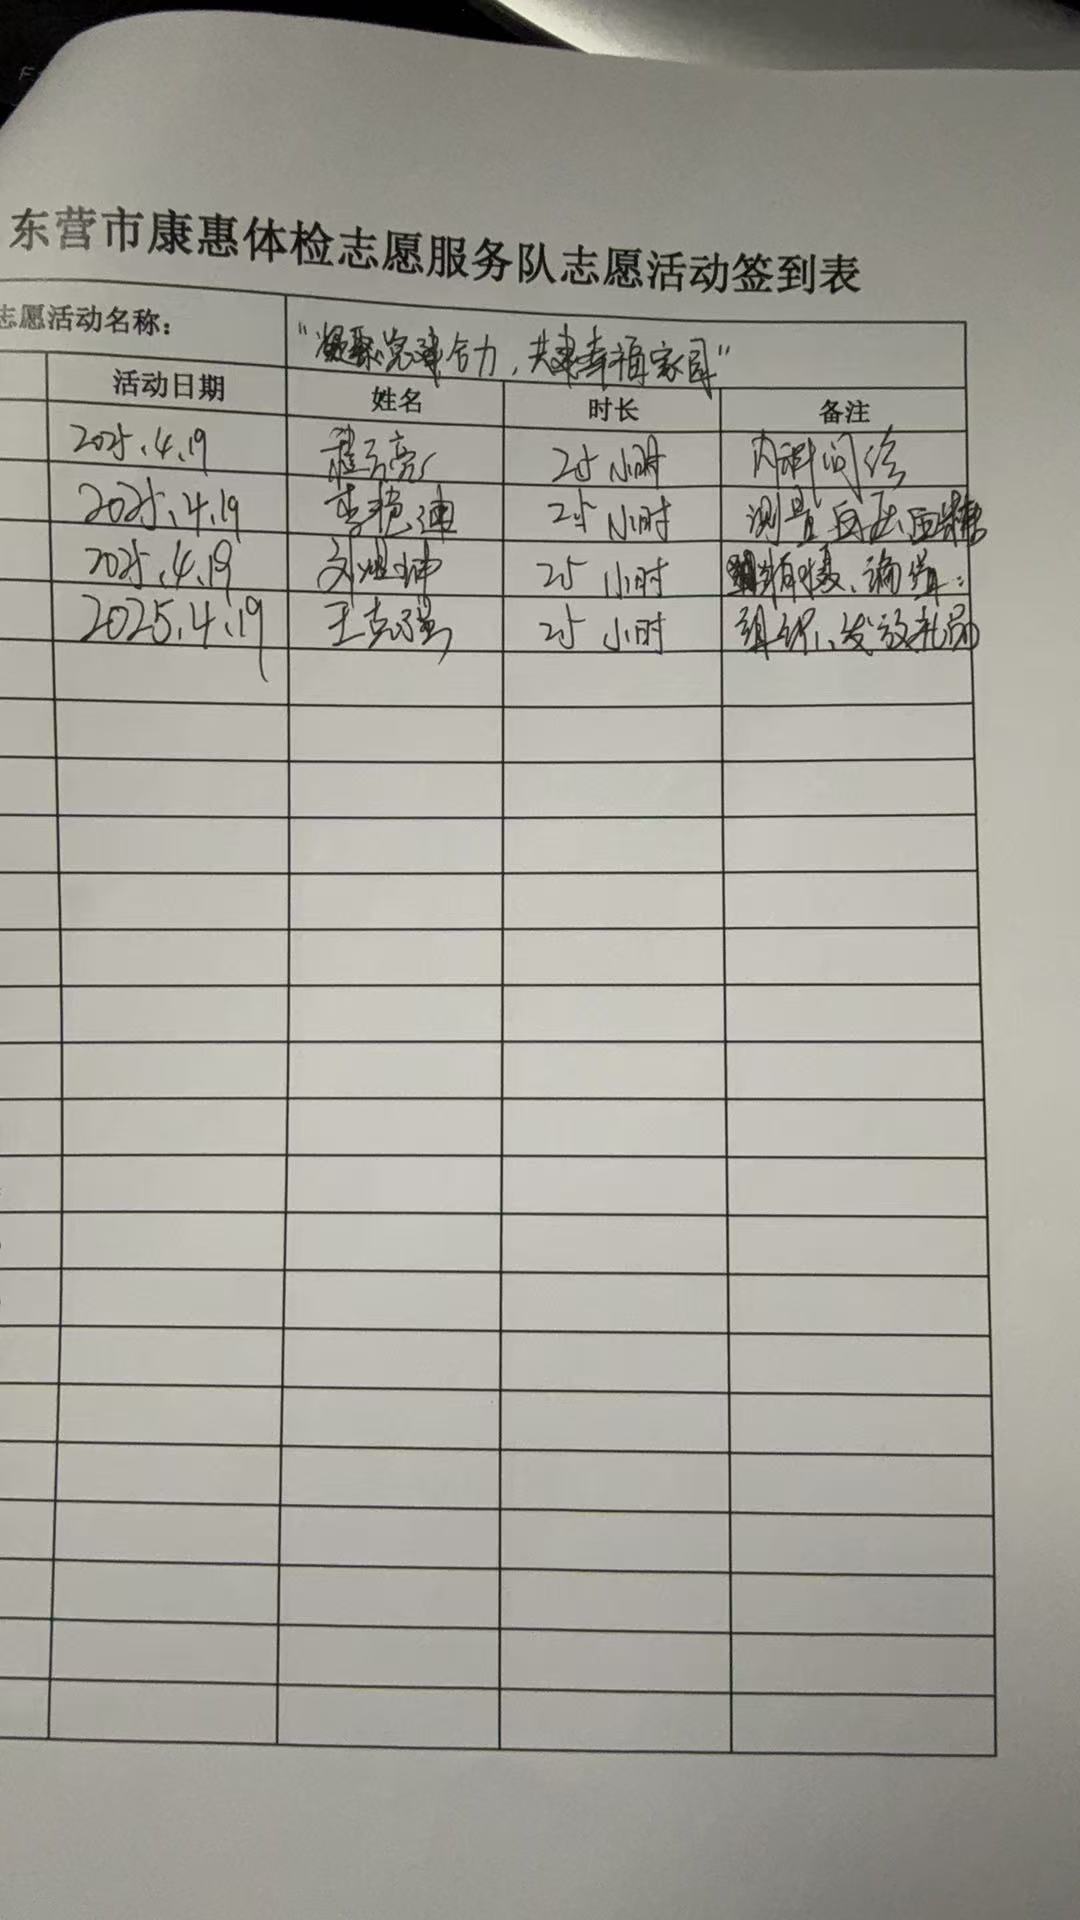 东营市康惠体检志愿服务队志愿活动签到表
志愿活动名称: "凝聚党建合力,共建幸福家园"
活动日期 姓名 时长 备注
2025.4.19 亮 25 小时 内科问诊
2025.4.19 李艳迪 25 小时 测量血压、血糖
2025.4.19 刘坤 25 小时 拍摄、
2025.4.19 王克强 25 小时 组织、发放礼品